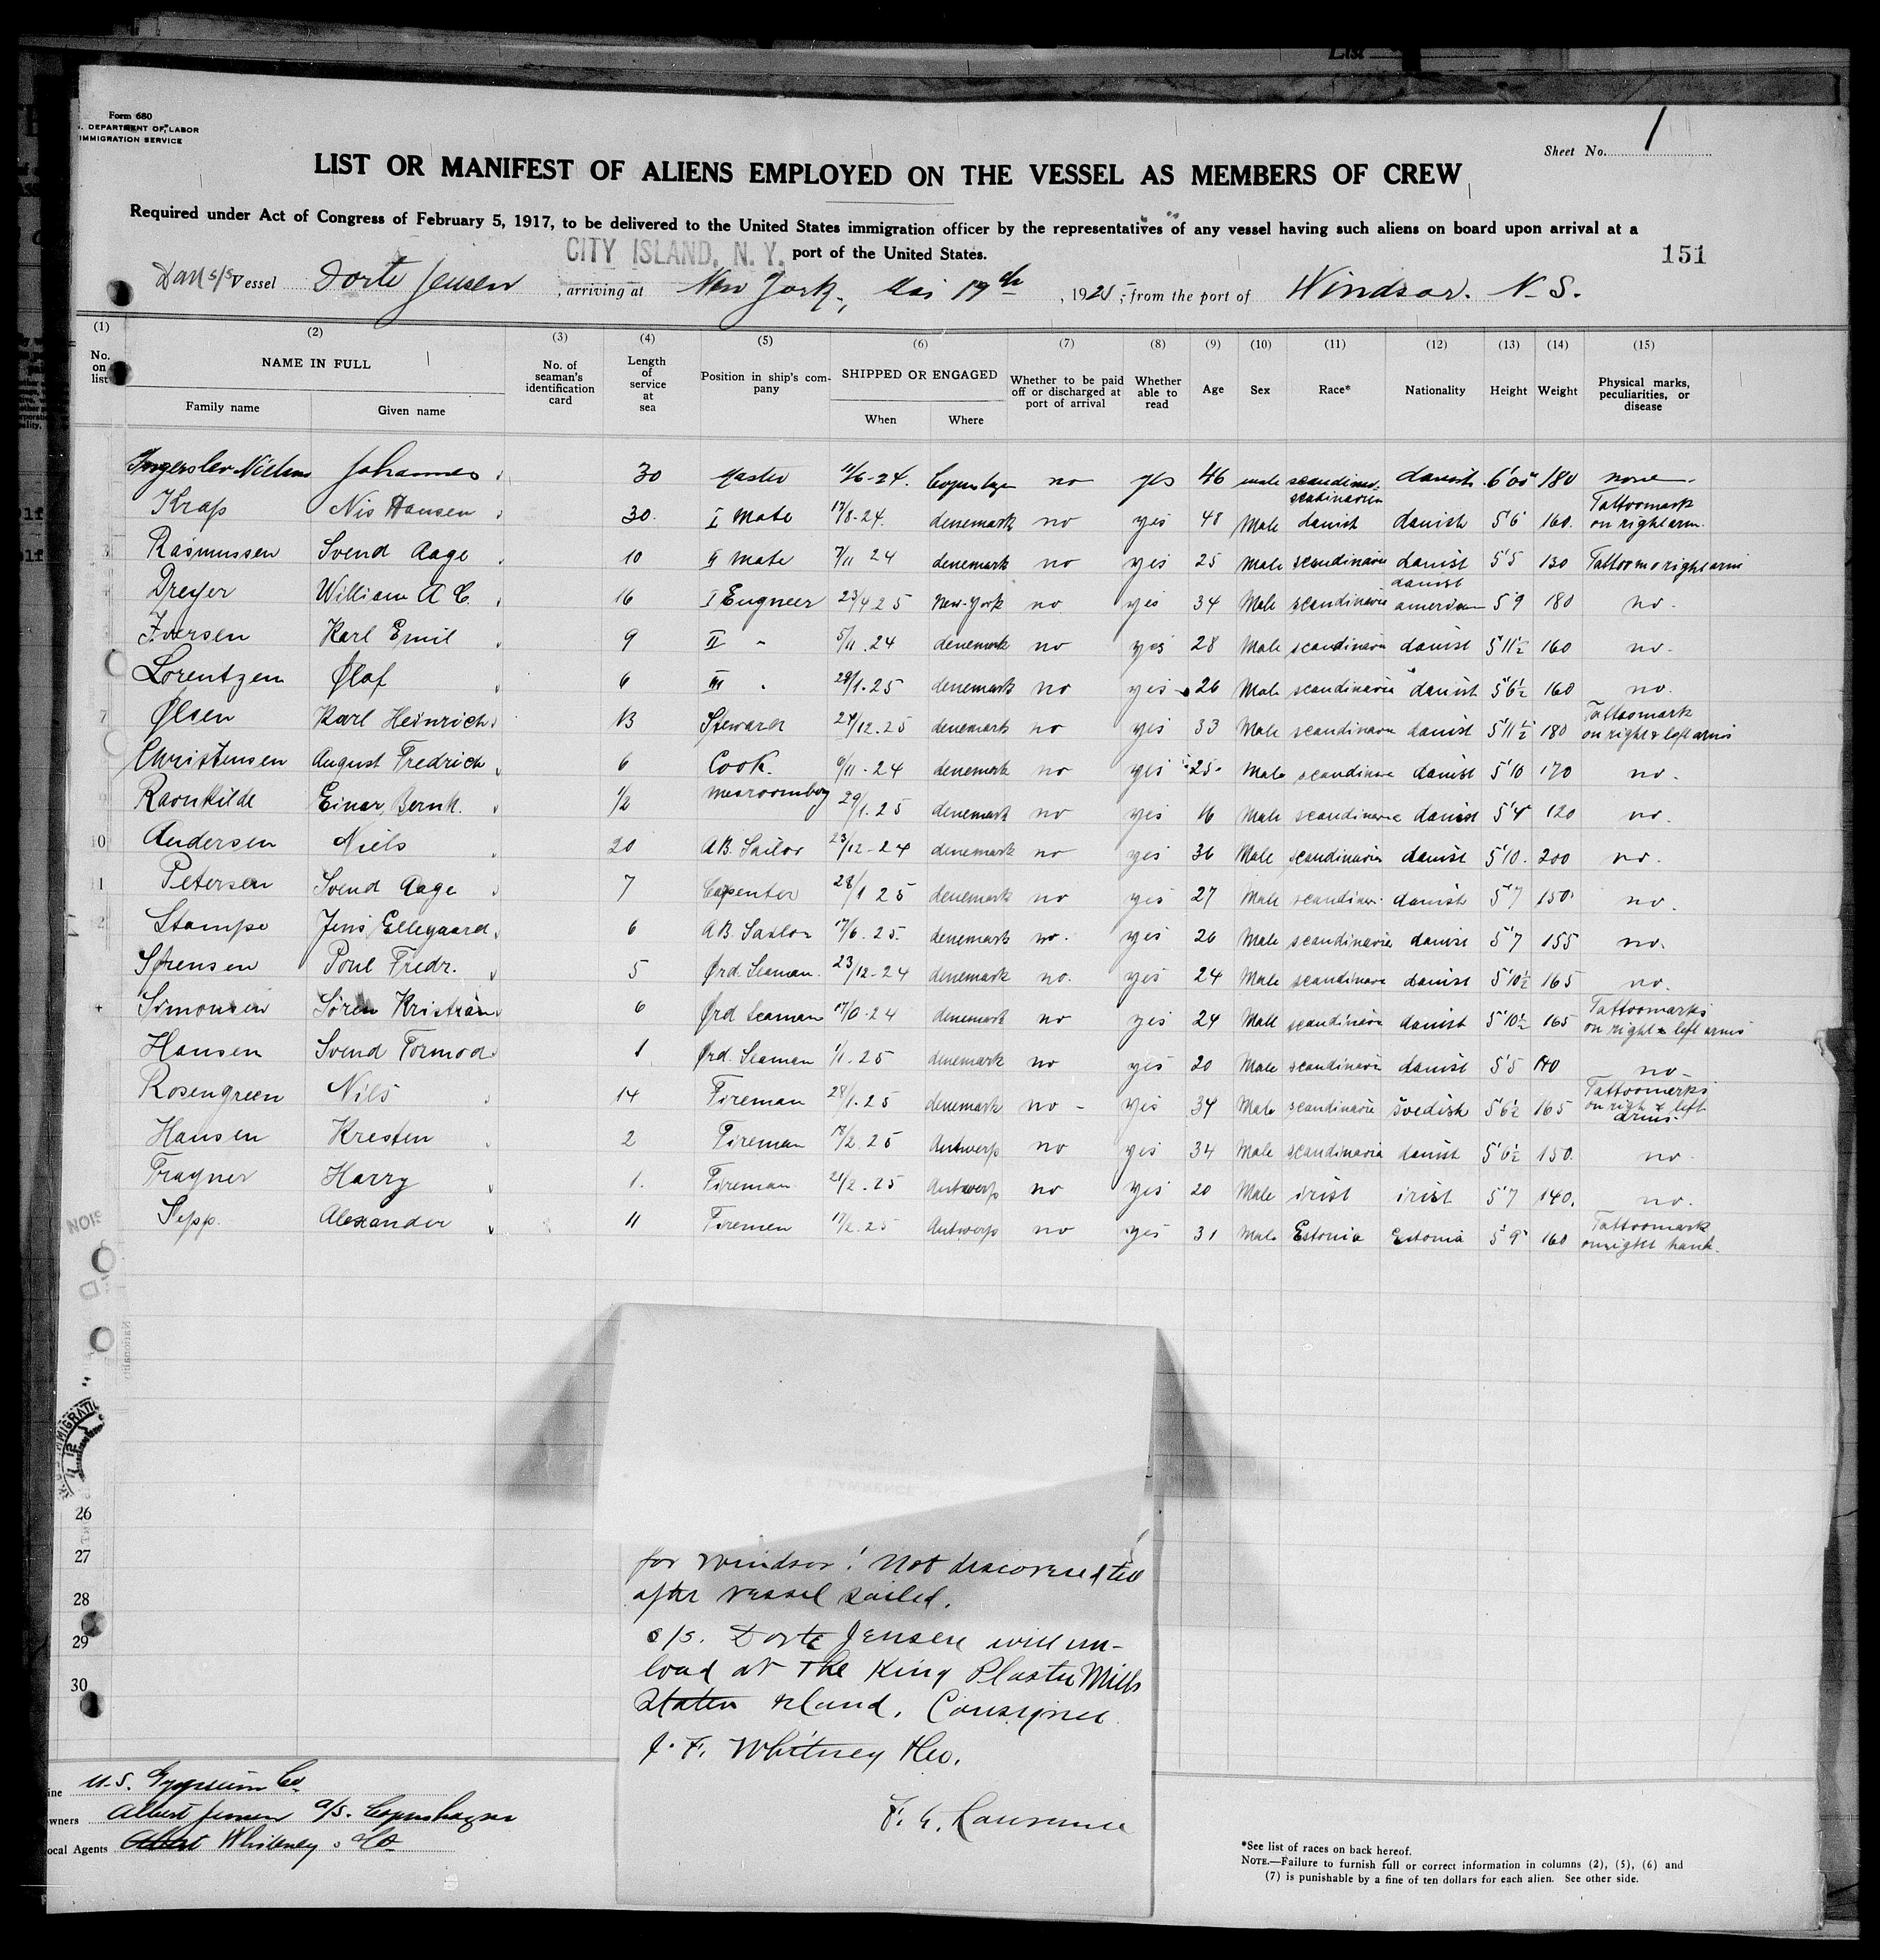 Form 680
DEPARTMENT OF LABOR
IMMIGRATION SERVICE
Sheet No. 1
LIST OR MANIFEST OF ALIENS EMPLOYED ON THE VESSEL AS MEMBERS OF CREW
Required under Act of Congress of February 5, 1917, to be delivered to the United States immigration officer by the representatives of any vessel having such aliens on board upon arrival at a
CITY ISLAND, N. Y. port of the United States.
151
Dan s/s Vessel Dorte Jensen, arriving at New York, Mai 19th, 1925, from the port of Windsor. N.S.
(1) (2) (3) (4) (5) (6) (7) (8) (9) (10) (11) (12) (13) (14) (15)
No. on list NAME IN FULL No. of seaman's identification card Length of service at sea Position in ship's company SHIPPED OR ENGAGED Whether to be paid off or discharged at port of arrival Whether able to read Age Sex Race* Nationality Height Weight Physical marks, peculiarities, or disease
Family name Given name When Where
Ingerslev Nielsen Johannes 30 Master 11/6-24. Copenhagen no yes 46 male scandinav. danish 6'00" 180 none
Krap Nis Hansen 30. I Mate 17/8-24. denemark no yes 48 Male scandinavien danish danish 5'6 160. Tattoomark on right arm.
3 Rasmussen Svend Aage 10 II Mate 7/11 24 denemark no yes 25 Male scandinavia danish 5'5 130 Tattoom o right arm
Dreyer William A C. 16 I Engneer 23/4 25 New-York no yes 34 Male scandinavia danish american 5'9 180 no.
Iversen Karl Emil 9 II " 5/11.24 denemark no yes 28 Male scandinavia danish 5'11½ 160 no.
Lorentzen Olaf 6 III " 28/1.25 denemark no yes 26 Male scandinavia danish 5'6½ 160 no.
7 Olsen Karl Heinrich 13 Steward 27/12.25 denemark no yes 33 Male scandinavia danish 5'11½ 180 Tattoomark on right & left arms
Christensen August Fredrich 6 Cook. 6/11-24 denemark no yes 25 Male scandinavia danish 5'10 170 no.
9 Ravnkilde Einar, Bernh. 1/2 Messroomboy 29/1.25 denemark no yes 16 Male scandinavia danish 5'4 120 no.
10 Andersen Niels 20 A B. Sailor 23/12-24 denemark no yes 36 Male scandinavia danish 5'10. 200 no.
11 Petersen Svend Aage 7 Carpenter 28/1 25 denemark no yes 27 Male scandinav. danish 5'7 150 no.
2 Stampe Jens Ellegaard 6 A B. Sailor 17/6.25. denemark no. yes 26 Male scandinavia danish 5'7 155 no.
Sørensen Poul Fredr. 5 Ord. Seaman. 23/12-24 denemark no. yes 24 Male scandinavia danish 5'10½ 165 no.
Simonsen Sören Kristian 6 Ord seaman 17/10-24 denemark no yes 24 Male scandinavia danish 5'10½ 165 Tattoomarks on right & left arms
Hansen Svend Tormod 1 Ord. Seaman 1/1.25 denemark no yes 20 Male scandinavia danish 5'5 140 no
Rosengreen Nils 14 Fireman 28/1.25 denemark no - yes 34 Male scandinavia svedish 5'6½ 165 Tattoomerks on righ & left arms.
Hansen Kresten 2 Fireman 18/2 25 Antwerp no yes 34 Male scandinavia danish 5'6½ 150. no.
Fragner Harry 1. Fireman 21/2.25 Antwerp no yes 20 Male irish irish 5'7 140. no.
Sepp. Alexander 11 Firemen 17/2.25 Antwerp no yes 31 Male Estonia Estonia 5'9" 160 Tattoomark on right hank.
26
27
28
29
30
for windsor! Not discovered till
after vessel sailed.
s/s. Dorte Jensen will un-
load at the King Plaster Mills
Staten Island, Consignee
J. F. Whitney & Co.
F. G. Lawrence
ine U.S. Gypsum Co.
wners Albert Jensen a/s. Copenhagen
ocal Agents Whiteney & Co
*See list of races on back hereof.
NOTE.—Failure to furnish full or correct information in columns (2), (5), (6) and
(7) is punishable by a fine of ten dollars for each alien. See other side.